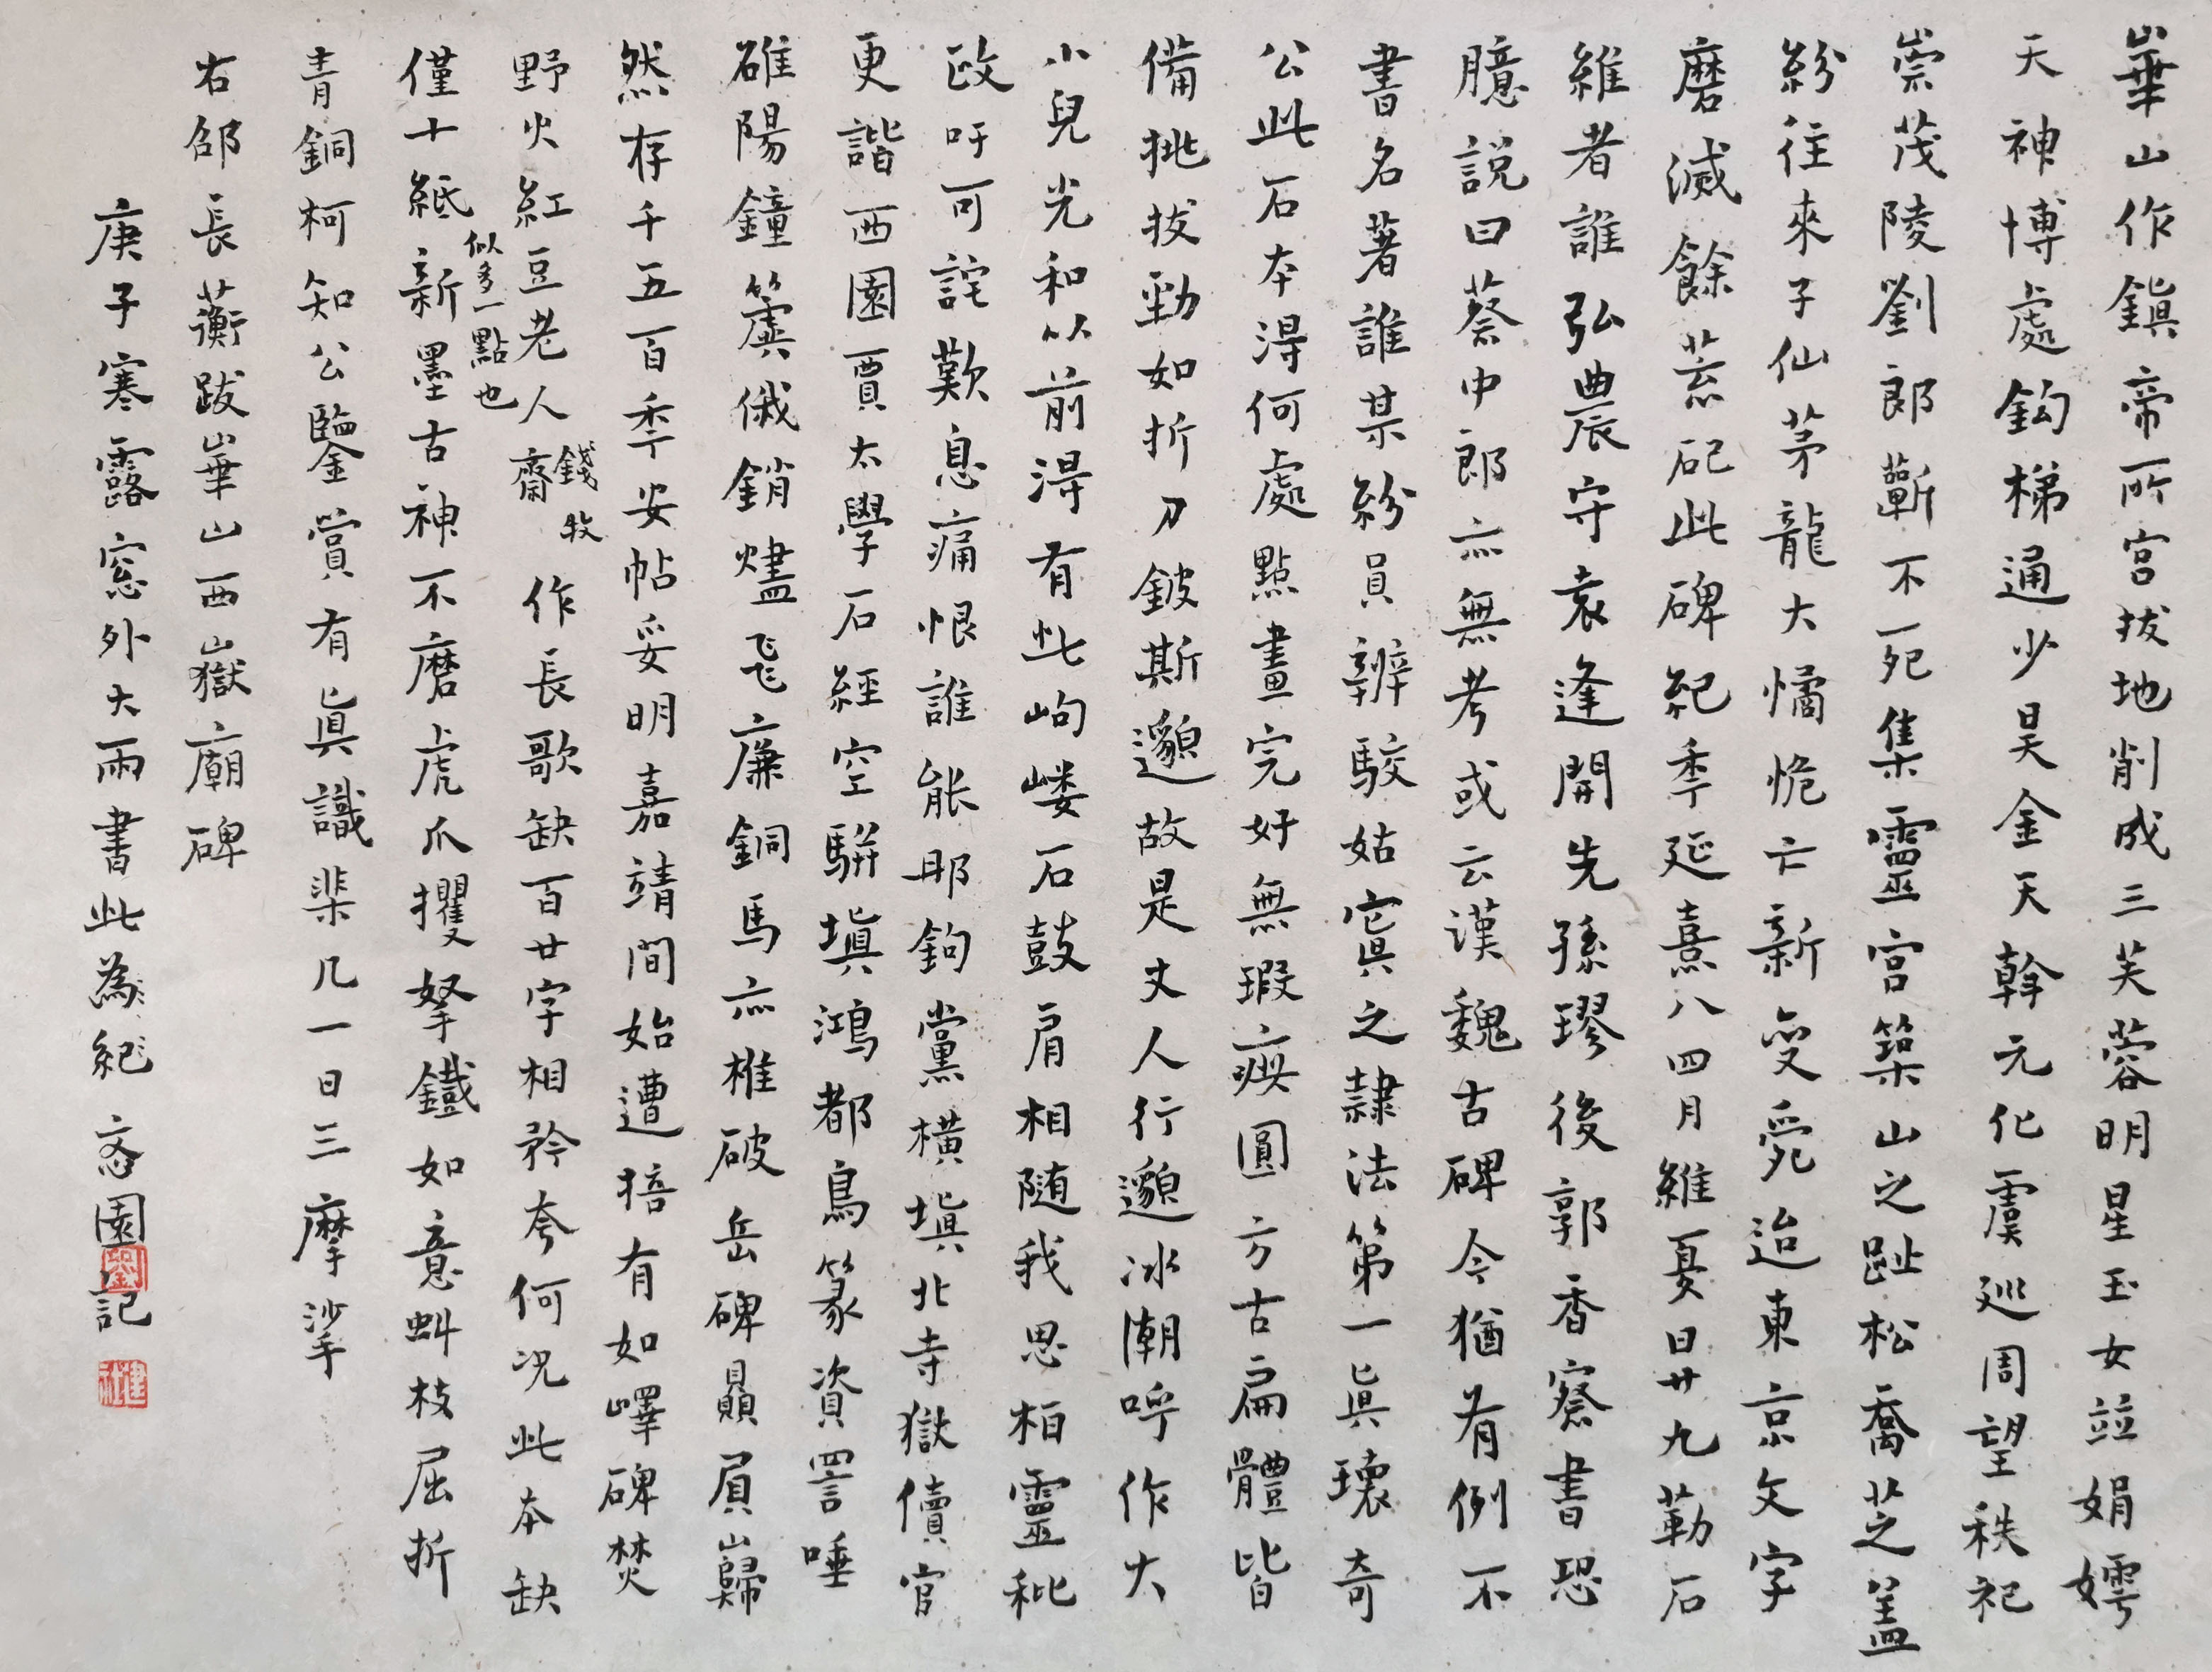 崋山作鎮帝所宮拔地削成三芙蓉明星玉女竝娟嫮
天神博處鈎梯通少昊金天斡元化虞巡周望秩祀
崇茂陵劉郎蘄不死集靈宮築山之趾松喬芝蓋
紛往來子仙茅龍大憰恑亡新變亂迨東京文字
磨滅餘荒祀此碑紀秊延熹八四月維夏日廿九勒石
維者誰弘農守袁逢開先孫璆後郭香察書恐
臆說曰蔡中郎亦無考或云漢魏古碑今猶有例不
書名著誰某紛員辨駮姑寘之隸法第一眞瓌奇
公此石本淂何處點畫完好無瑕疻圓方古扁體皆
備挑拔勁如折刀鈹斯邈故是丈人行邈冰潮呼作大
小兒光和以前淂有此岣嶁石鼓肩相随我思柏靈秕
政吁可詫歎息痛恨誰能那鉤黨橫塡北寺獄償官
更諧西園賈太學石經空駢塡鴻都鳥篆資詈唾
碓陽鐘簴俄銷燼飛廉銅馬亦椎破岳碑贔屓巋
然存千五百秊安帖妥明嘉靖間始遭掊有如嶧碑焚
野火紅豆老人錢牧齋作長歌缺百廿字相矜夸何况此本缺
僅十紙新墨古神不磨虎爪攫拏鐵如意虯枝屈折
似多一點也
青銅柯知公鑒賞有眞識棐几一日三摩挲
右邵長蘅跋崋山西嶽廟碑
庚子寒露窓外大雨書此為紀 忞園記